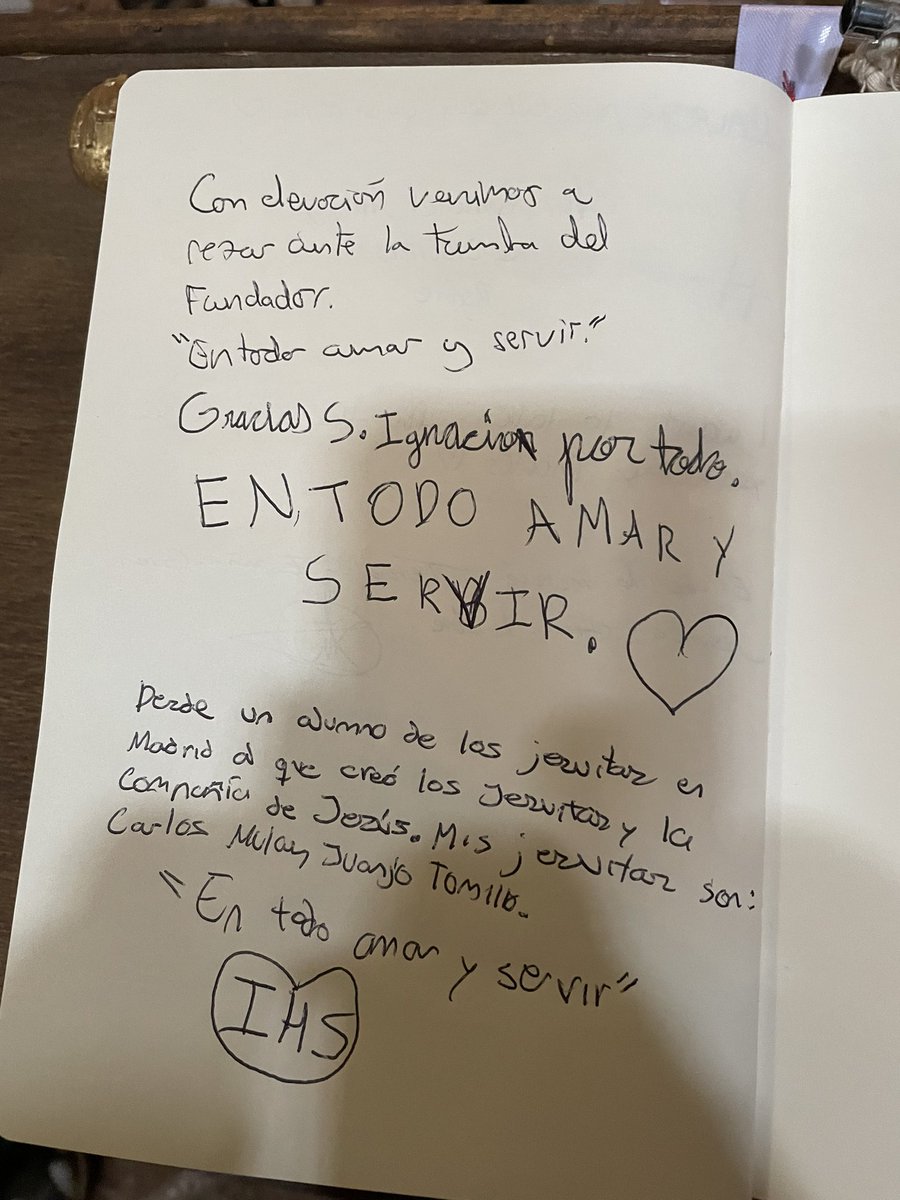 Con devoción venimos a
rezar ante la tumba del
Fundador.
"En todo amar y servir."
Gracias S. Ignacion por todo.
EN, TODO AMAR Y
SERVIR.
Desde un alumno de los jesuitas en
Madrid al que creó los Jesuitas y la
Compañía de Jesús. Mis jesuitas son:
Carlos Juanjo Tomillo.
"En todo amar y servir"
IHS